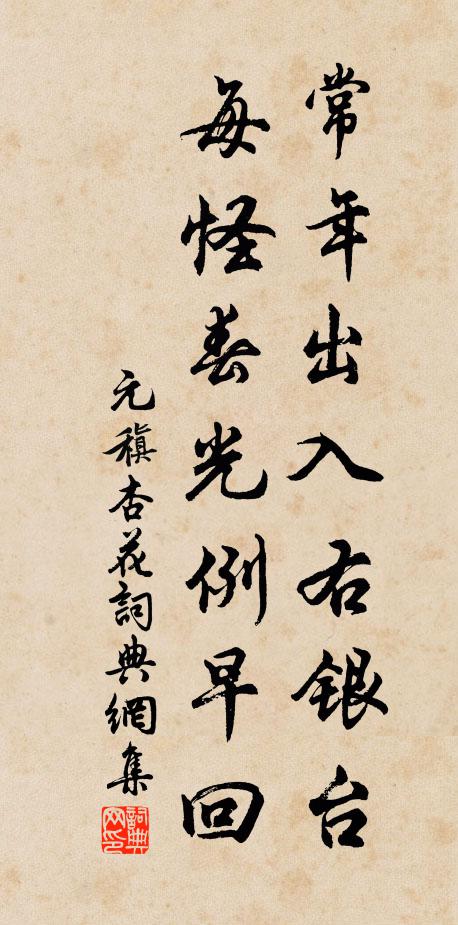 常年出入右銀台
每怪春光例早回
元稹杏花詞典網集
詞典網印